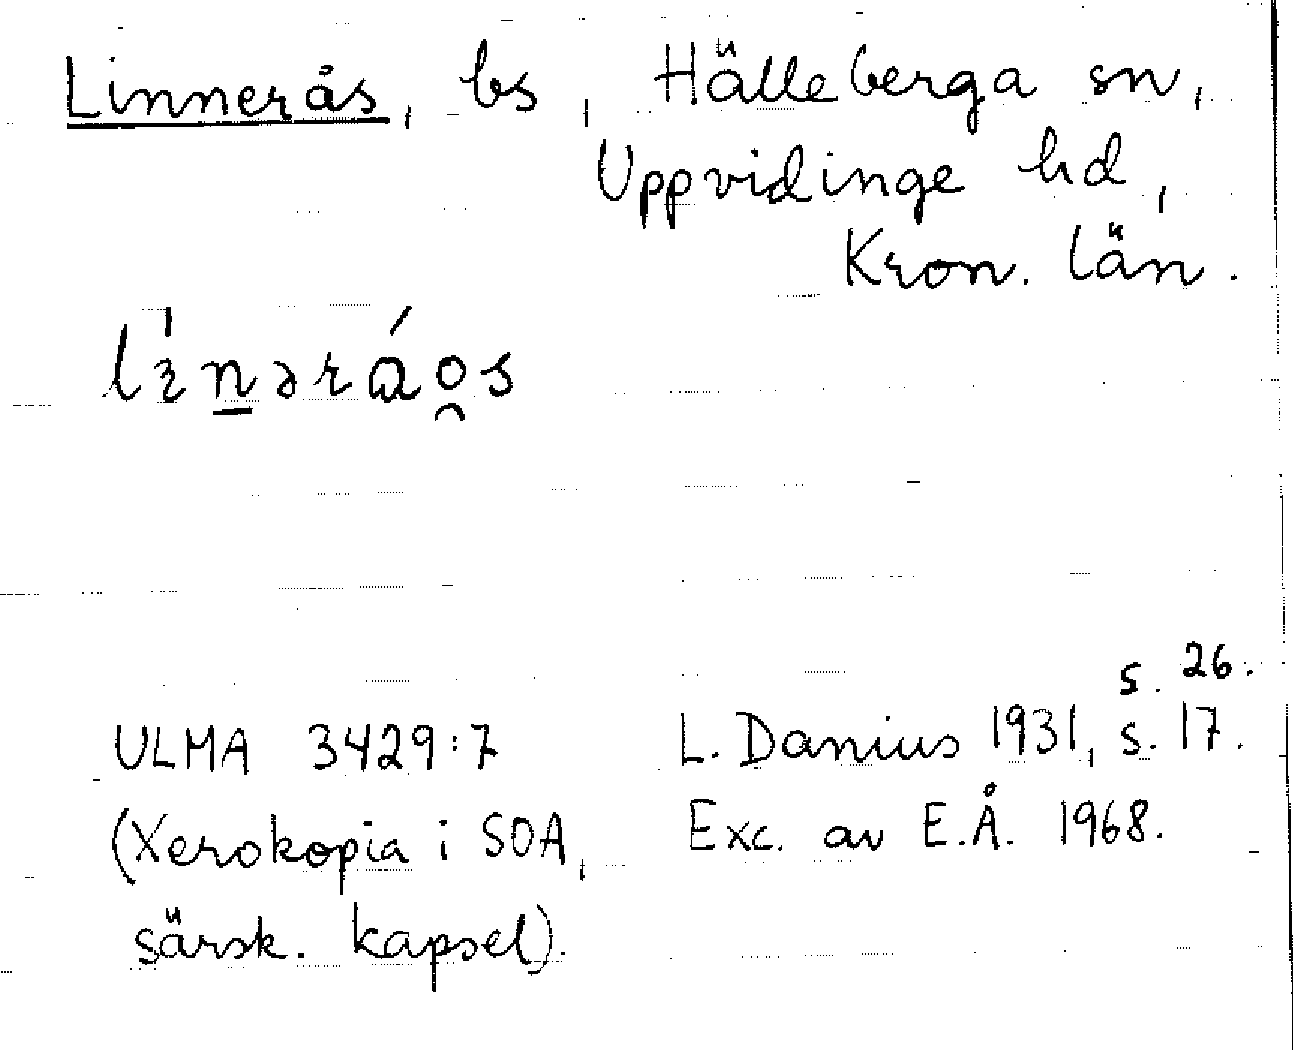 Linnerås, bs, Hälleberga sn,
Uppvidinge hd,
Kron. län.
s. 26.
ULMA 3429:7 L. Danius 1931, s. 17.
(Xerokopia i SOA, Exc. av E.Å. 1968.
särsk. kapsel).